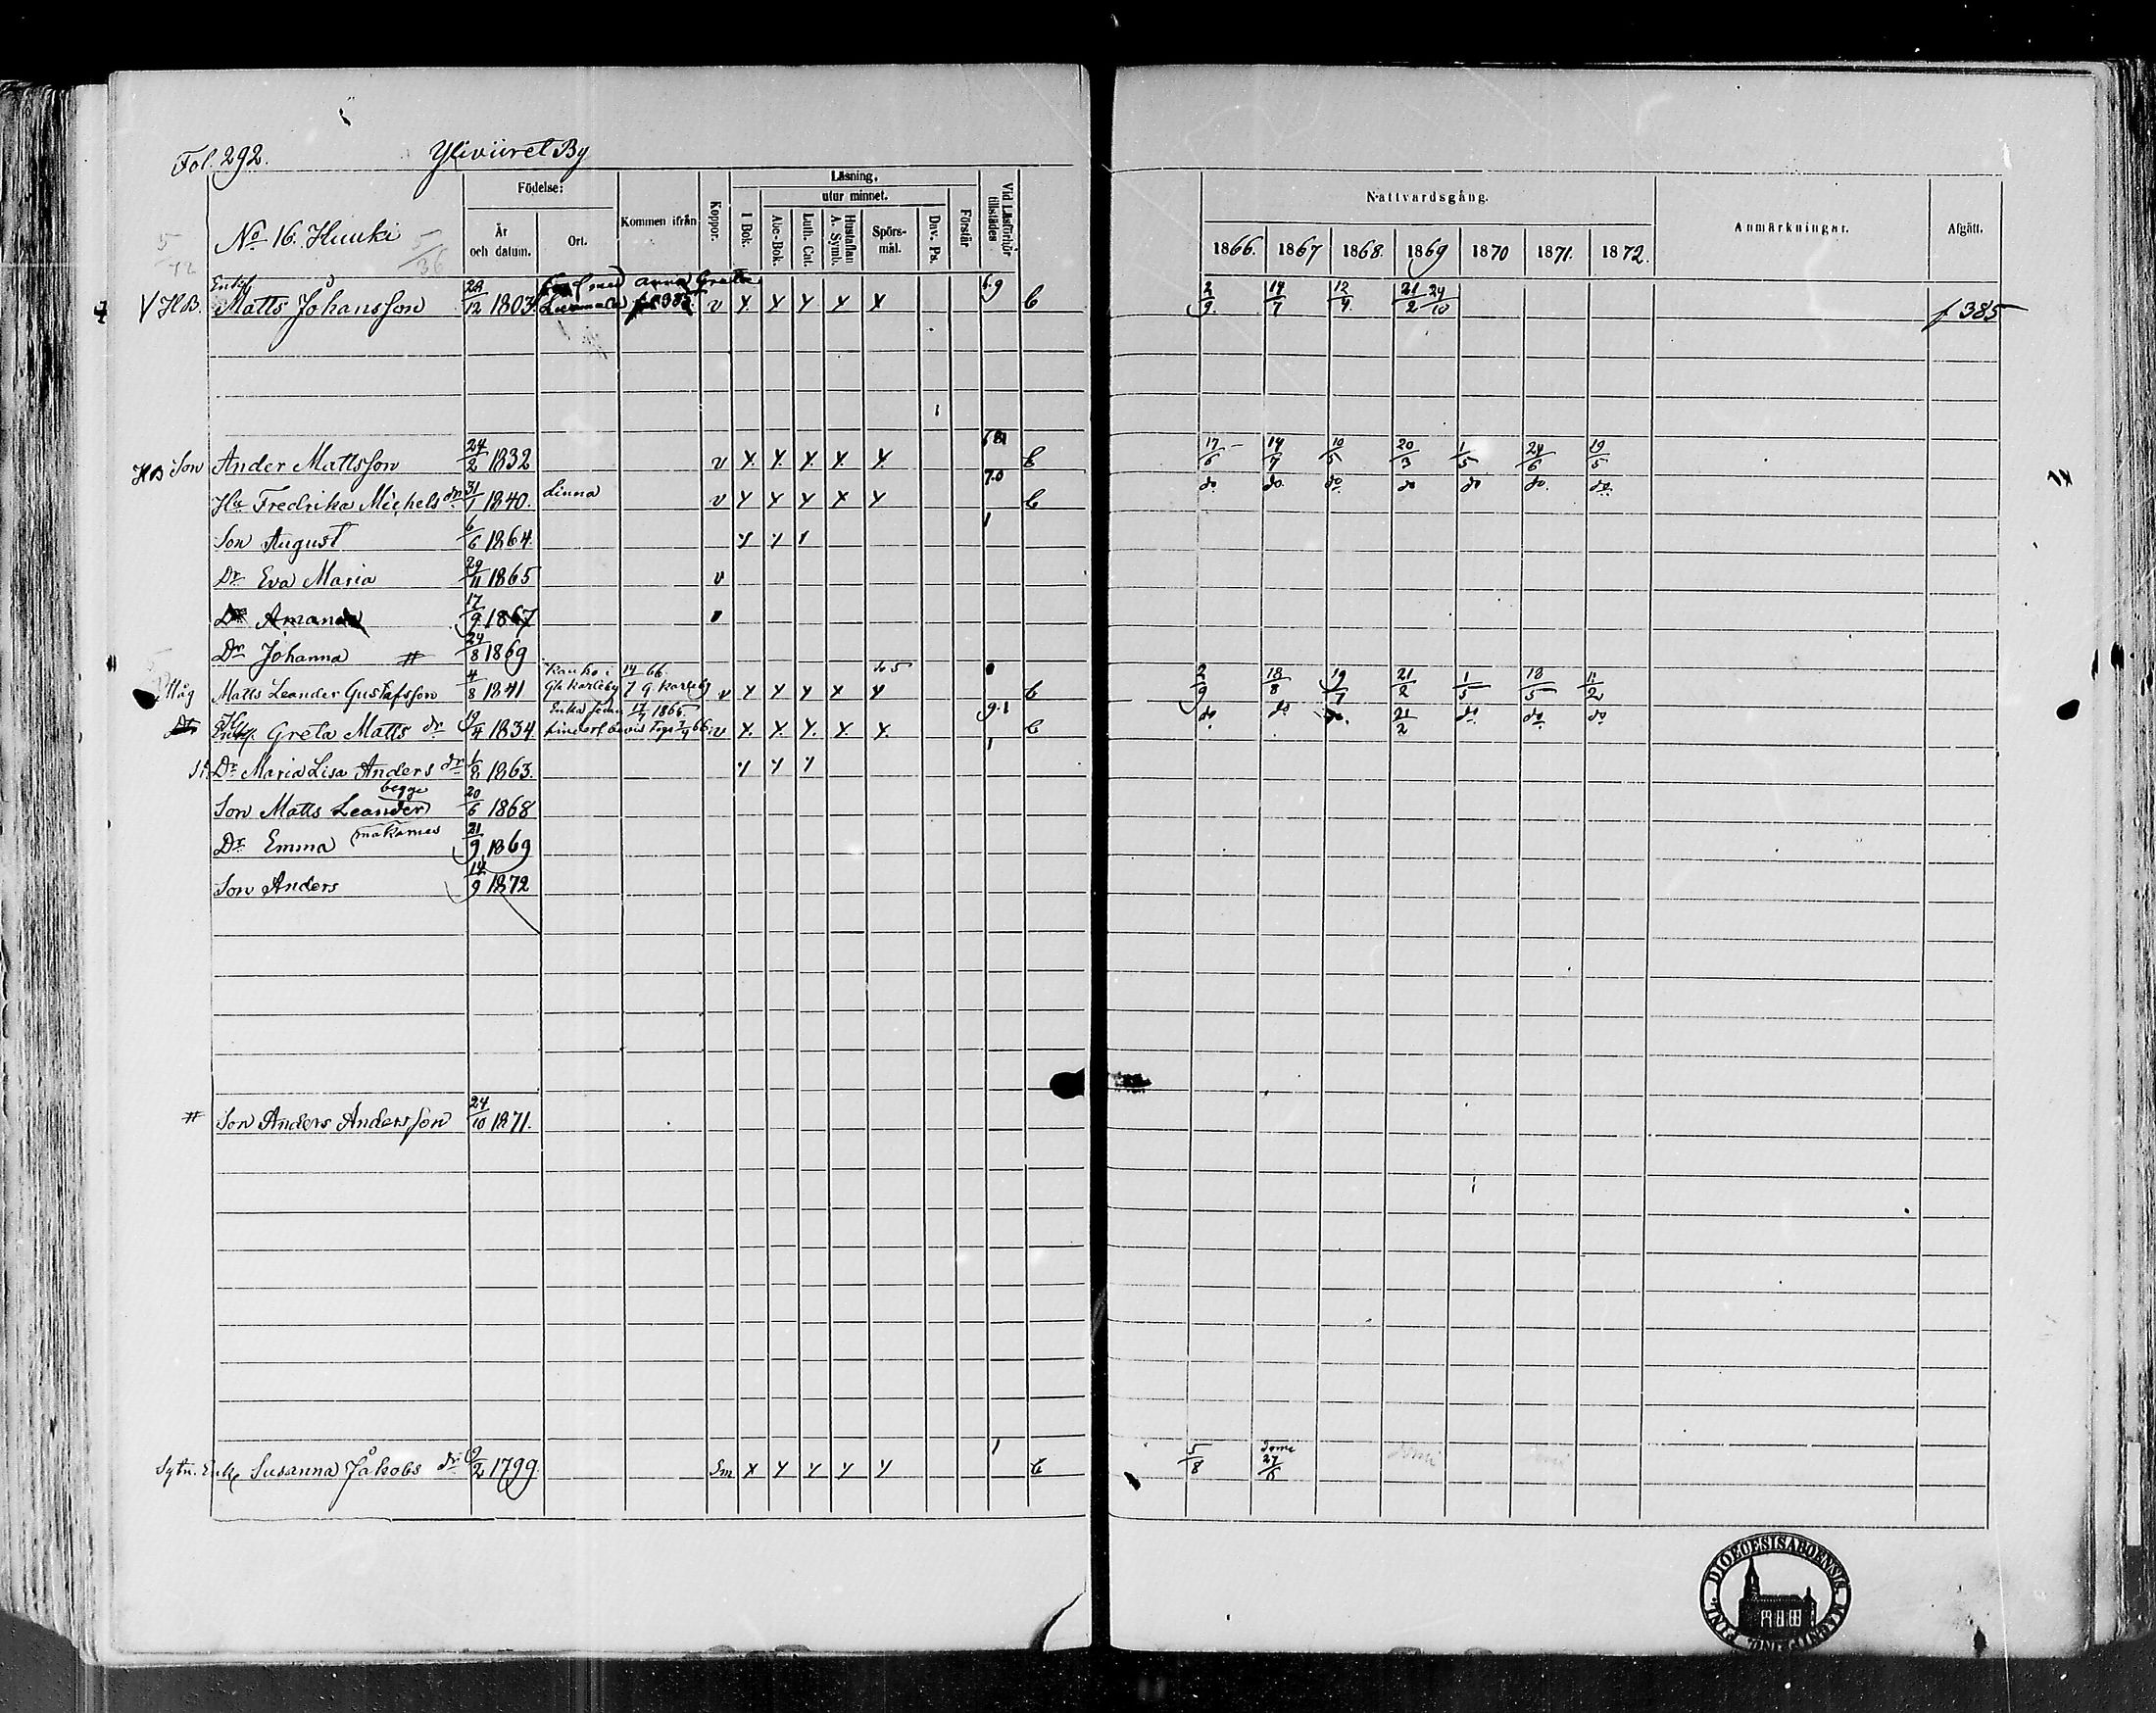 Fol. 292. Yliviiret By
No 16. Huuki
Födelse:
År och datum.
Ort.
Kommen ifrån
Koppor.
Läsning.
I Bok.
utur minnet.
Abc-Bok.
Luth. Cat.
Hustaflan A. Symb.
Spörs-mål.
Dav. Ps.
Förstår
Vid Läsförhör tillstädes
Nattvardsgång.
1866. 1867 1868. 1869 1870 1871. 1872.
Anmärkningar.
Afgått.
5/12 5/36
Enkl
V HB. Matts Johansson 28/12 1803 med Anna Greta fol 385 v x x x x x 6.9 b 2/9 14/7 12/4 21/2 24/10 f 385
HB Son Ander Mattsson 24/2 1832 v x x x x x b 17/6 14/7 10/5 20/3 1/5 24/6 19/5
Hu Fredrika Michels dr 31/7 1840. Linna v x x x x x 7.0 b do do. do do do do. do
Son August 6/6 1864. 1
Dr Eva Maria 29/11 1865 v
Dr Amanda 17/9 1867
Dr Johanna # 24/8 1869
Måg Matts Leander Gustafsson 4/8 1841 Kauko i Gla Karleby 14/7 66. G. Karleby v x x x x x b 2/9 18/8 19/7 21/2 1/5 18/5 11/2
Greta Matts dr 19/4 1834 v x x x x x 9.1 b do do do. 21/2 do do do
Dr Maria Lisa Anders dr 1/8 1863. 1
begge
Son Matts Leander 20/6 1868
makarnes
Dr Emma 21/9 1869
Son Anders 14/9 1872
# Son Anders Andersson 24/10 1871.
Sytn. Enk Susanna Jakobs dr 9/2 1799 Sm x x x x x 1 b 5/8 domi 27/6 domi
DIOECESIS ABOENSIS MAGNI PRINC. FINL.